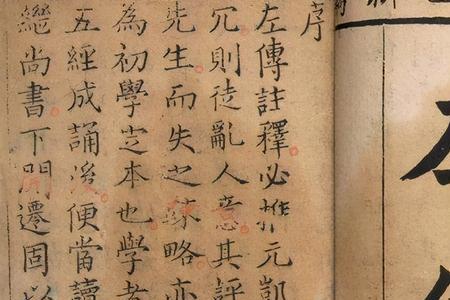 序
左傳註釋必推元凱
冗則徒亂人意其評
先生而失之疎略亦
為初學芝本也學者
五經成誦後便當讀
繼尚書下開遷固